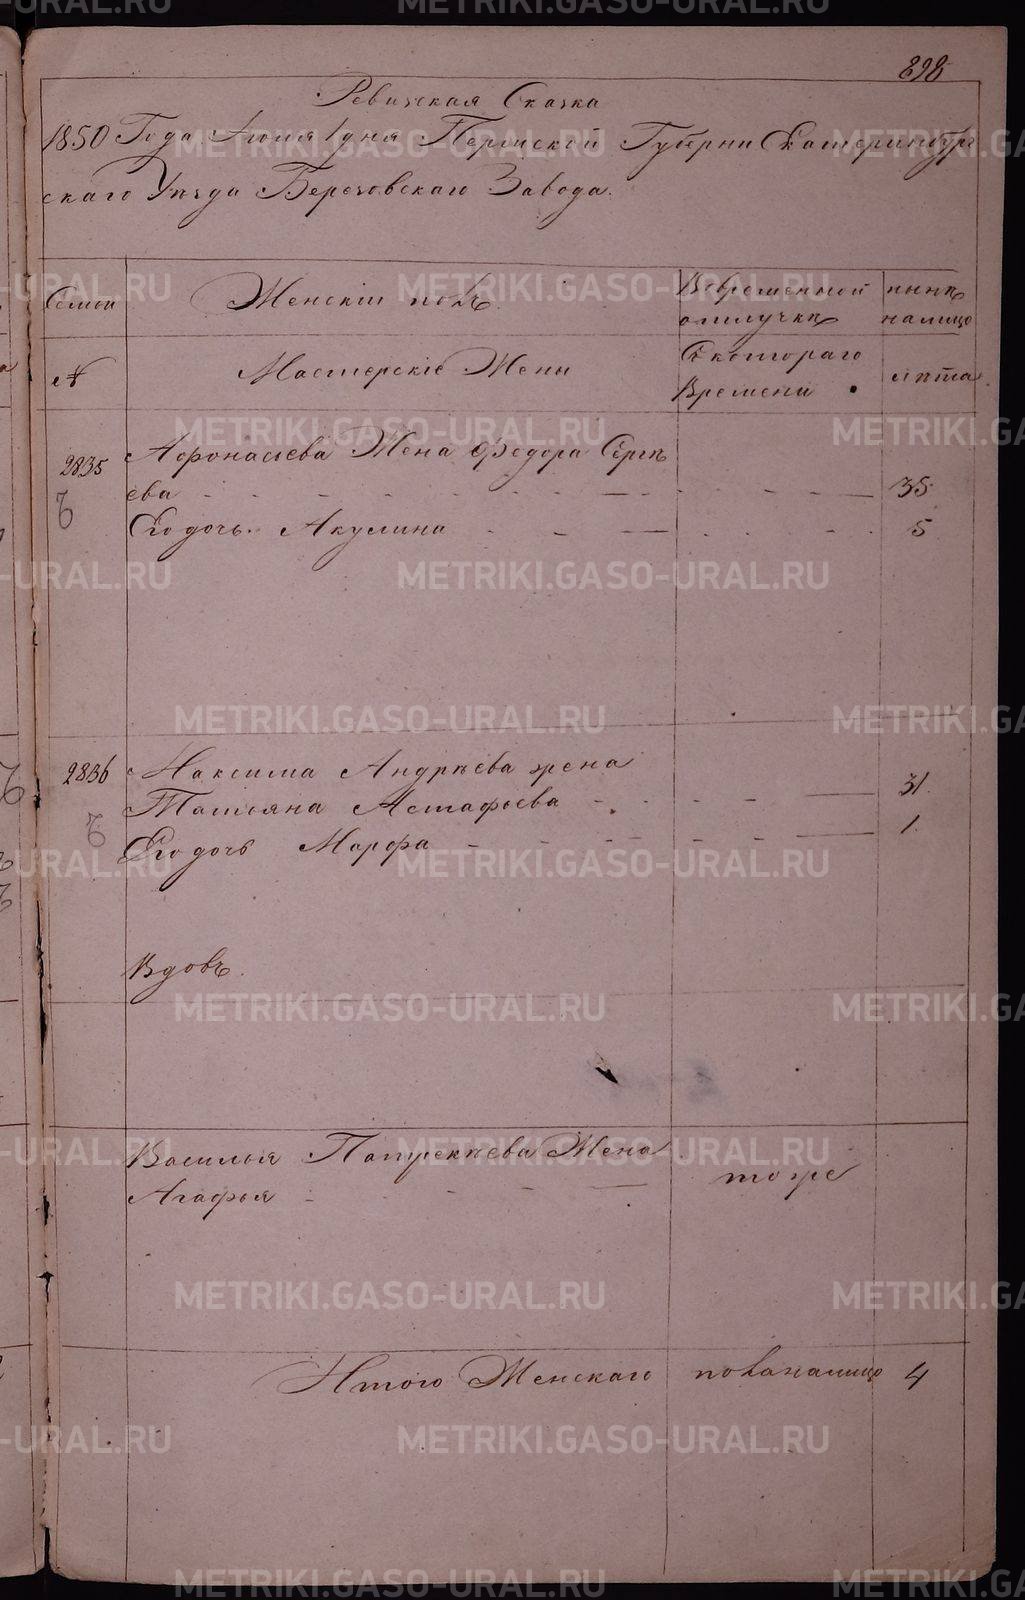 898
Ревижская Сказка
1850 Года Июля 1 дня Пермской Губерни Екатеринбург
скаго Уѣзда Березовскаго Завода.
Семьи Женскій полъ. Вовременной нынѣ
отлучкѣ налицо
№ Мастерскіе Жены Скотораго лѣта
Времени
2835 Афонасьева Жена Федора Сергѣ
ева 35
Его дочь Акулина 5
2836 Максима Андрѣева жена
Татьяна Астафьева 31.
Его дочь Марфа 1.
Вдовъ.
Василья Патрекѣева Жена тоже
Агафья
Итого Женскаго поланалицо 4
METRIKI.GASO-URAL.RU